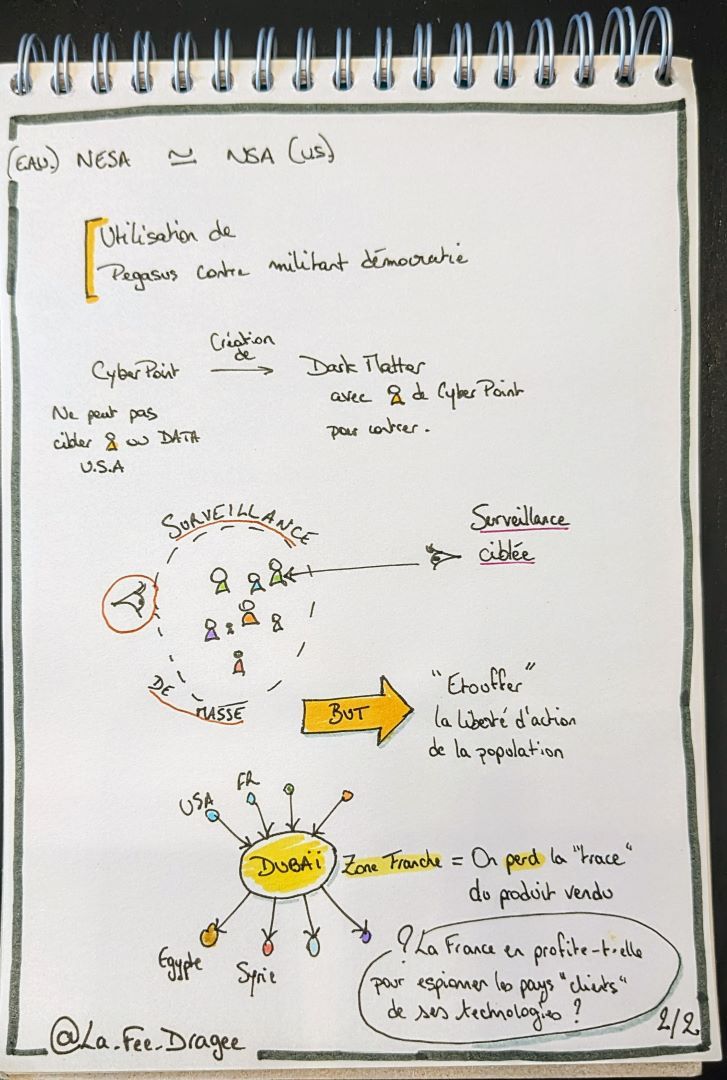 (EAU.) NESA ≃ NSA (US)
Utilisation de
Pegasus contre militant démocratie
CyberPoint
Création
de
Dark Matter
avec de CyberPoint
pour contrer.
Ne peut pas
cibler ou DATA
U.S.A
SURVEILLANCE
DE
MASSE
Surveillance
ciblée
BUT
"Etouffer"
la liberté d'action
de la population
USA
FR
DUBAÏ
Zone Franche = On perd la "trace"
du produit vendu
Egypte
Syrie
? La France en profite-t-elle
pour espionner les pays "clients"
de ses technologies ?
@La_Fee_Dragee
2/2